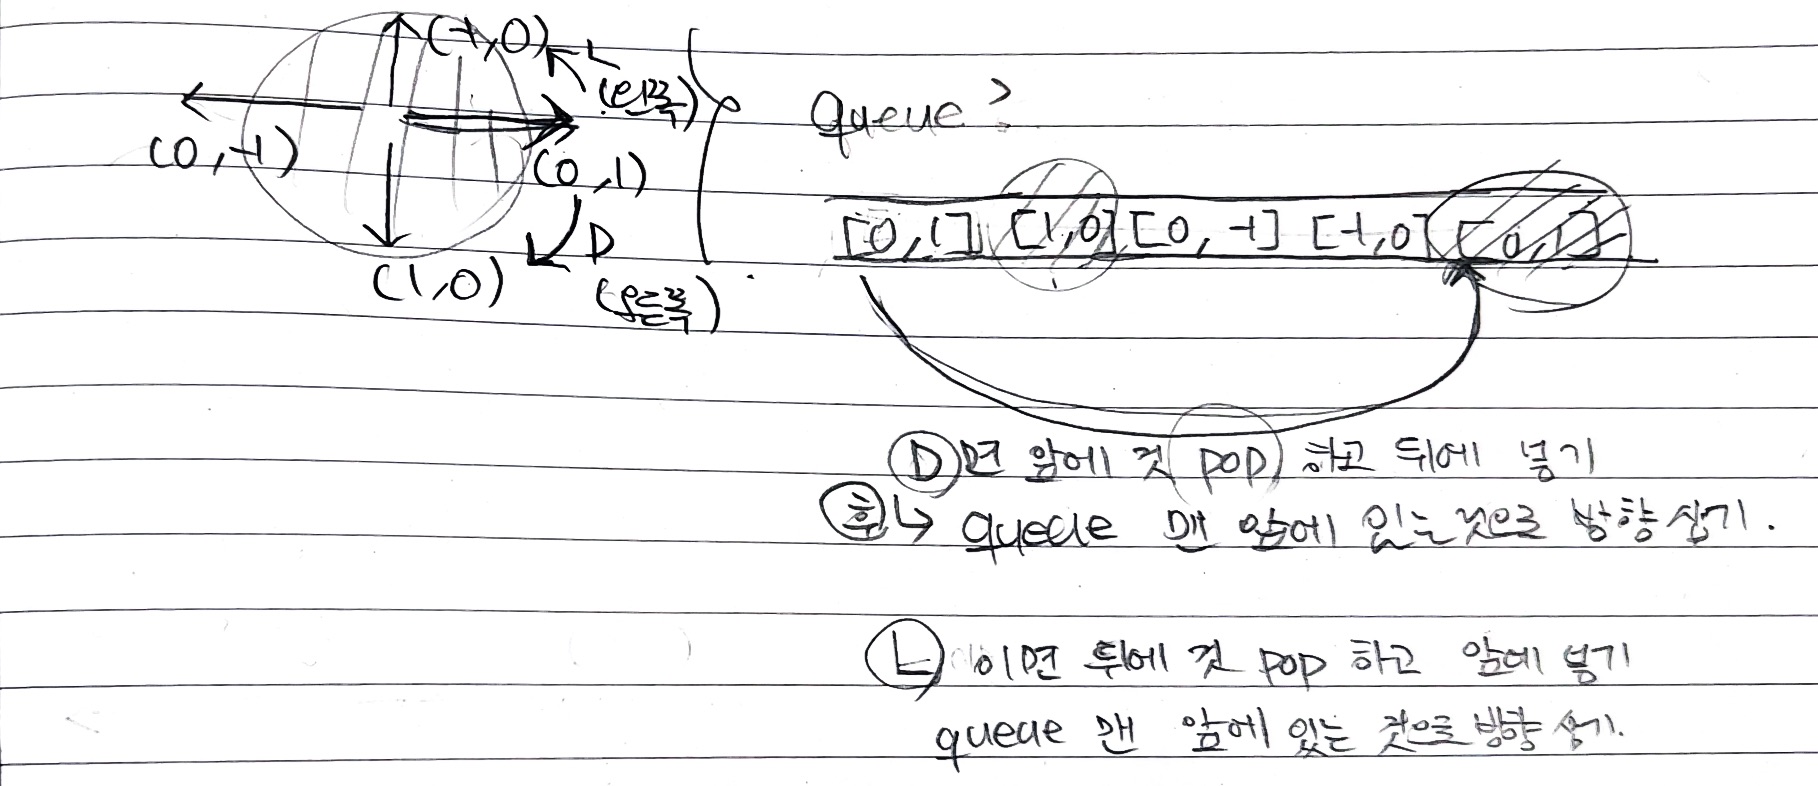 (-1,0)
L
(왼쪽)
(0,-1)
(0,1)
D
(1,0)
(오른쪽)
queue?
[0,1] [1,0] [0,-1] [-1,0] [0,1]
D면 앞에 것 pop 하고 뒤에 넣기
후 ↳ queue 맨 앞에 있는것으로 방향삼기.
L이면 뒤에 것 pop 하고 앞에 넣기
queue 맨 앞에 있는 것으로 방향 삼기.